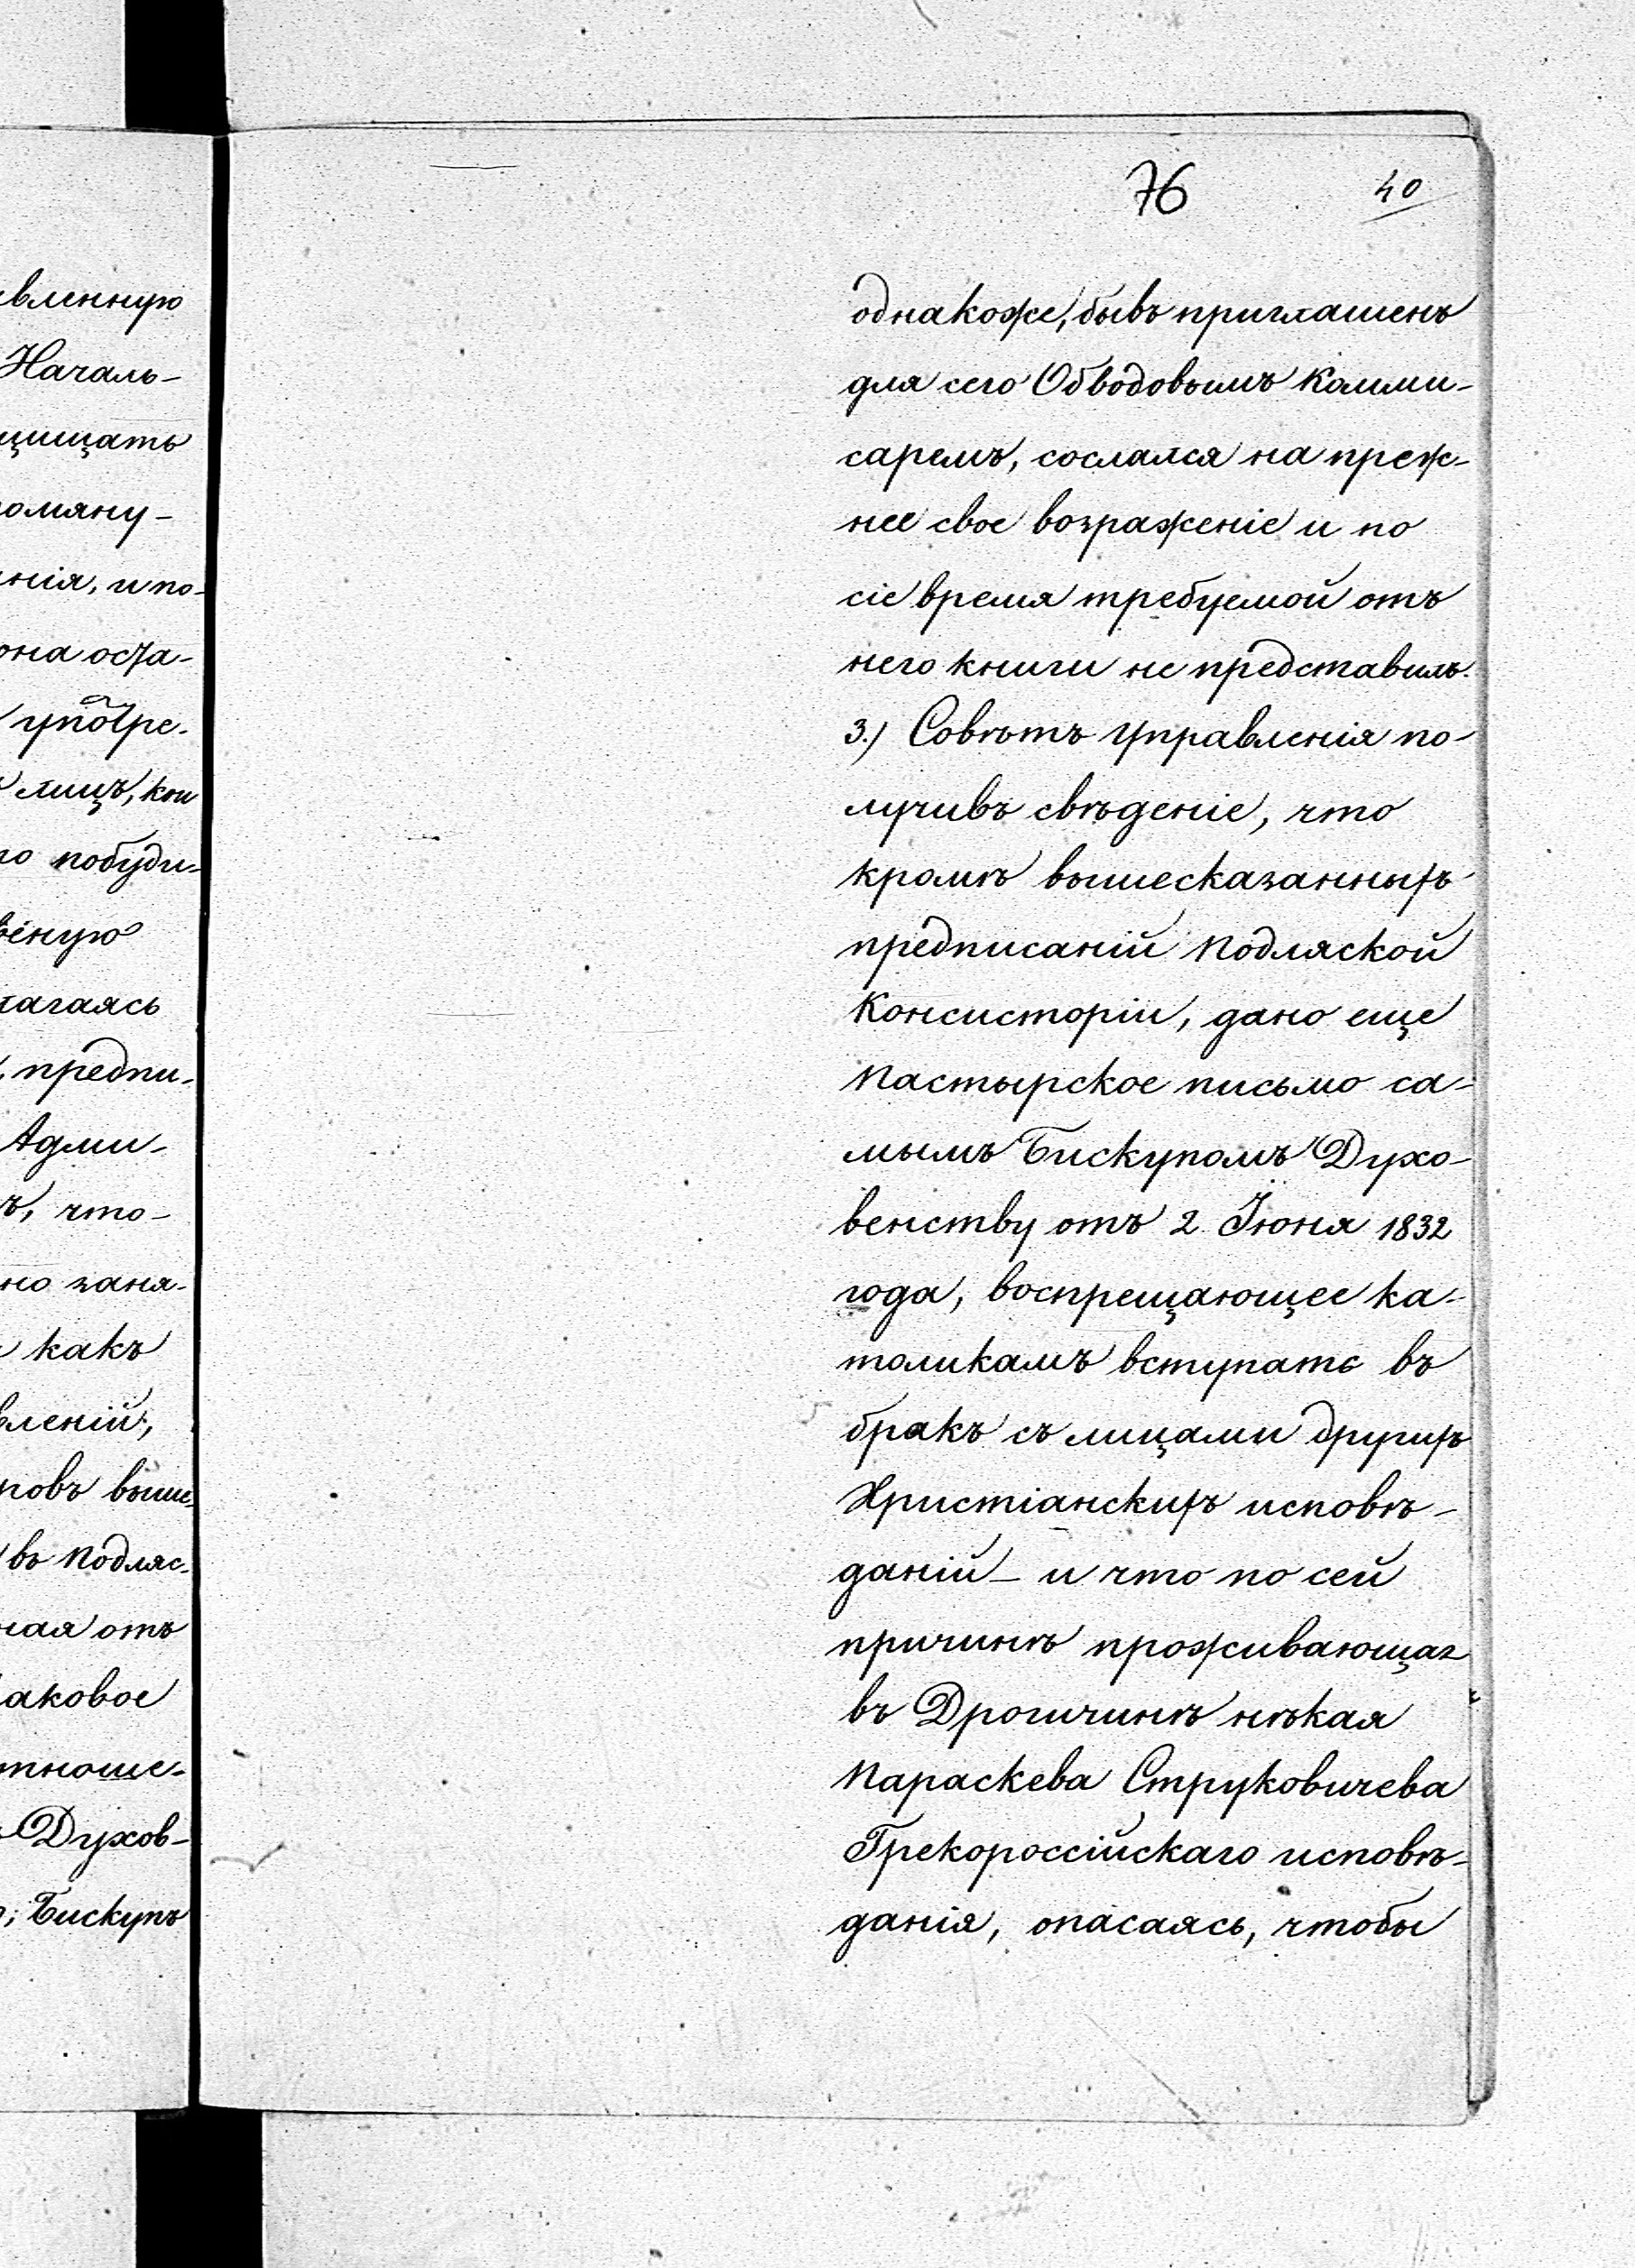 вленную
Началь-
щищать
омяну-
нія, и по-
она оста-
употре-
лицъ, кои
по побуди-
веную
лагаясь
предпи-
Адми-
ъ, что-
но заня-
какъ
вленій,
ровъ выше
въ Подляс-
ная отъ
аковое
тноше-
Духов-
; Бискупъ
76 40
однакоже, бывъ приглашенъ
для сего Обводовымъ Комми-
саремъ, сослался на преж-
нее свое возраженіе и по
сіе время требуемой отъ
него книги не представилъ.
3.) Совѣтъ Управленія по-
лучивъ свѣденіе, что
кромѣ вышесказанныхъ
предписаній Подляской
Консисторіи, дано еще
Пастырское письмо са-
мымъ Бискупомъ Духо-
венству отъ 2 Іюня 1832
года, воспрещающее ка-
толикамъ вступать въ
бракъ съ лицами другихъ
Христіанскихъ исповѣ-
даній – и что по сей
причинѣ проживающая
въ Дрогичинѣ нѣкая
Параскева Струковичева
Грекороссійскаго исповѣ-
данія, опасаясь, чтобы